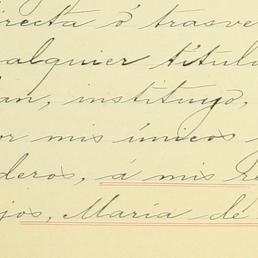 irecta ó trasve
ualquier títul
an, instituyo,
or mis únicos
deros, á mis re
jos, María de